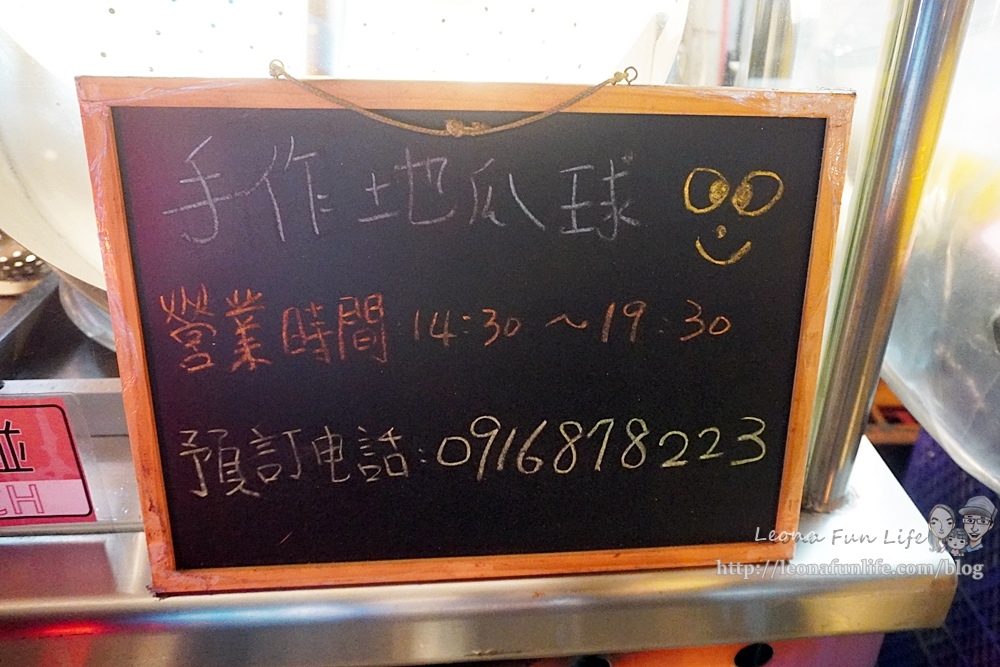 手作土地瓜球
營業時間 14:30～19:30
預訂电話:0916878223
Leona Fun Life
http://leonafunlife.com/blog